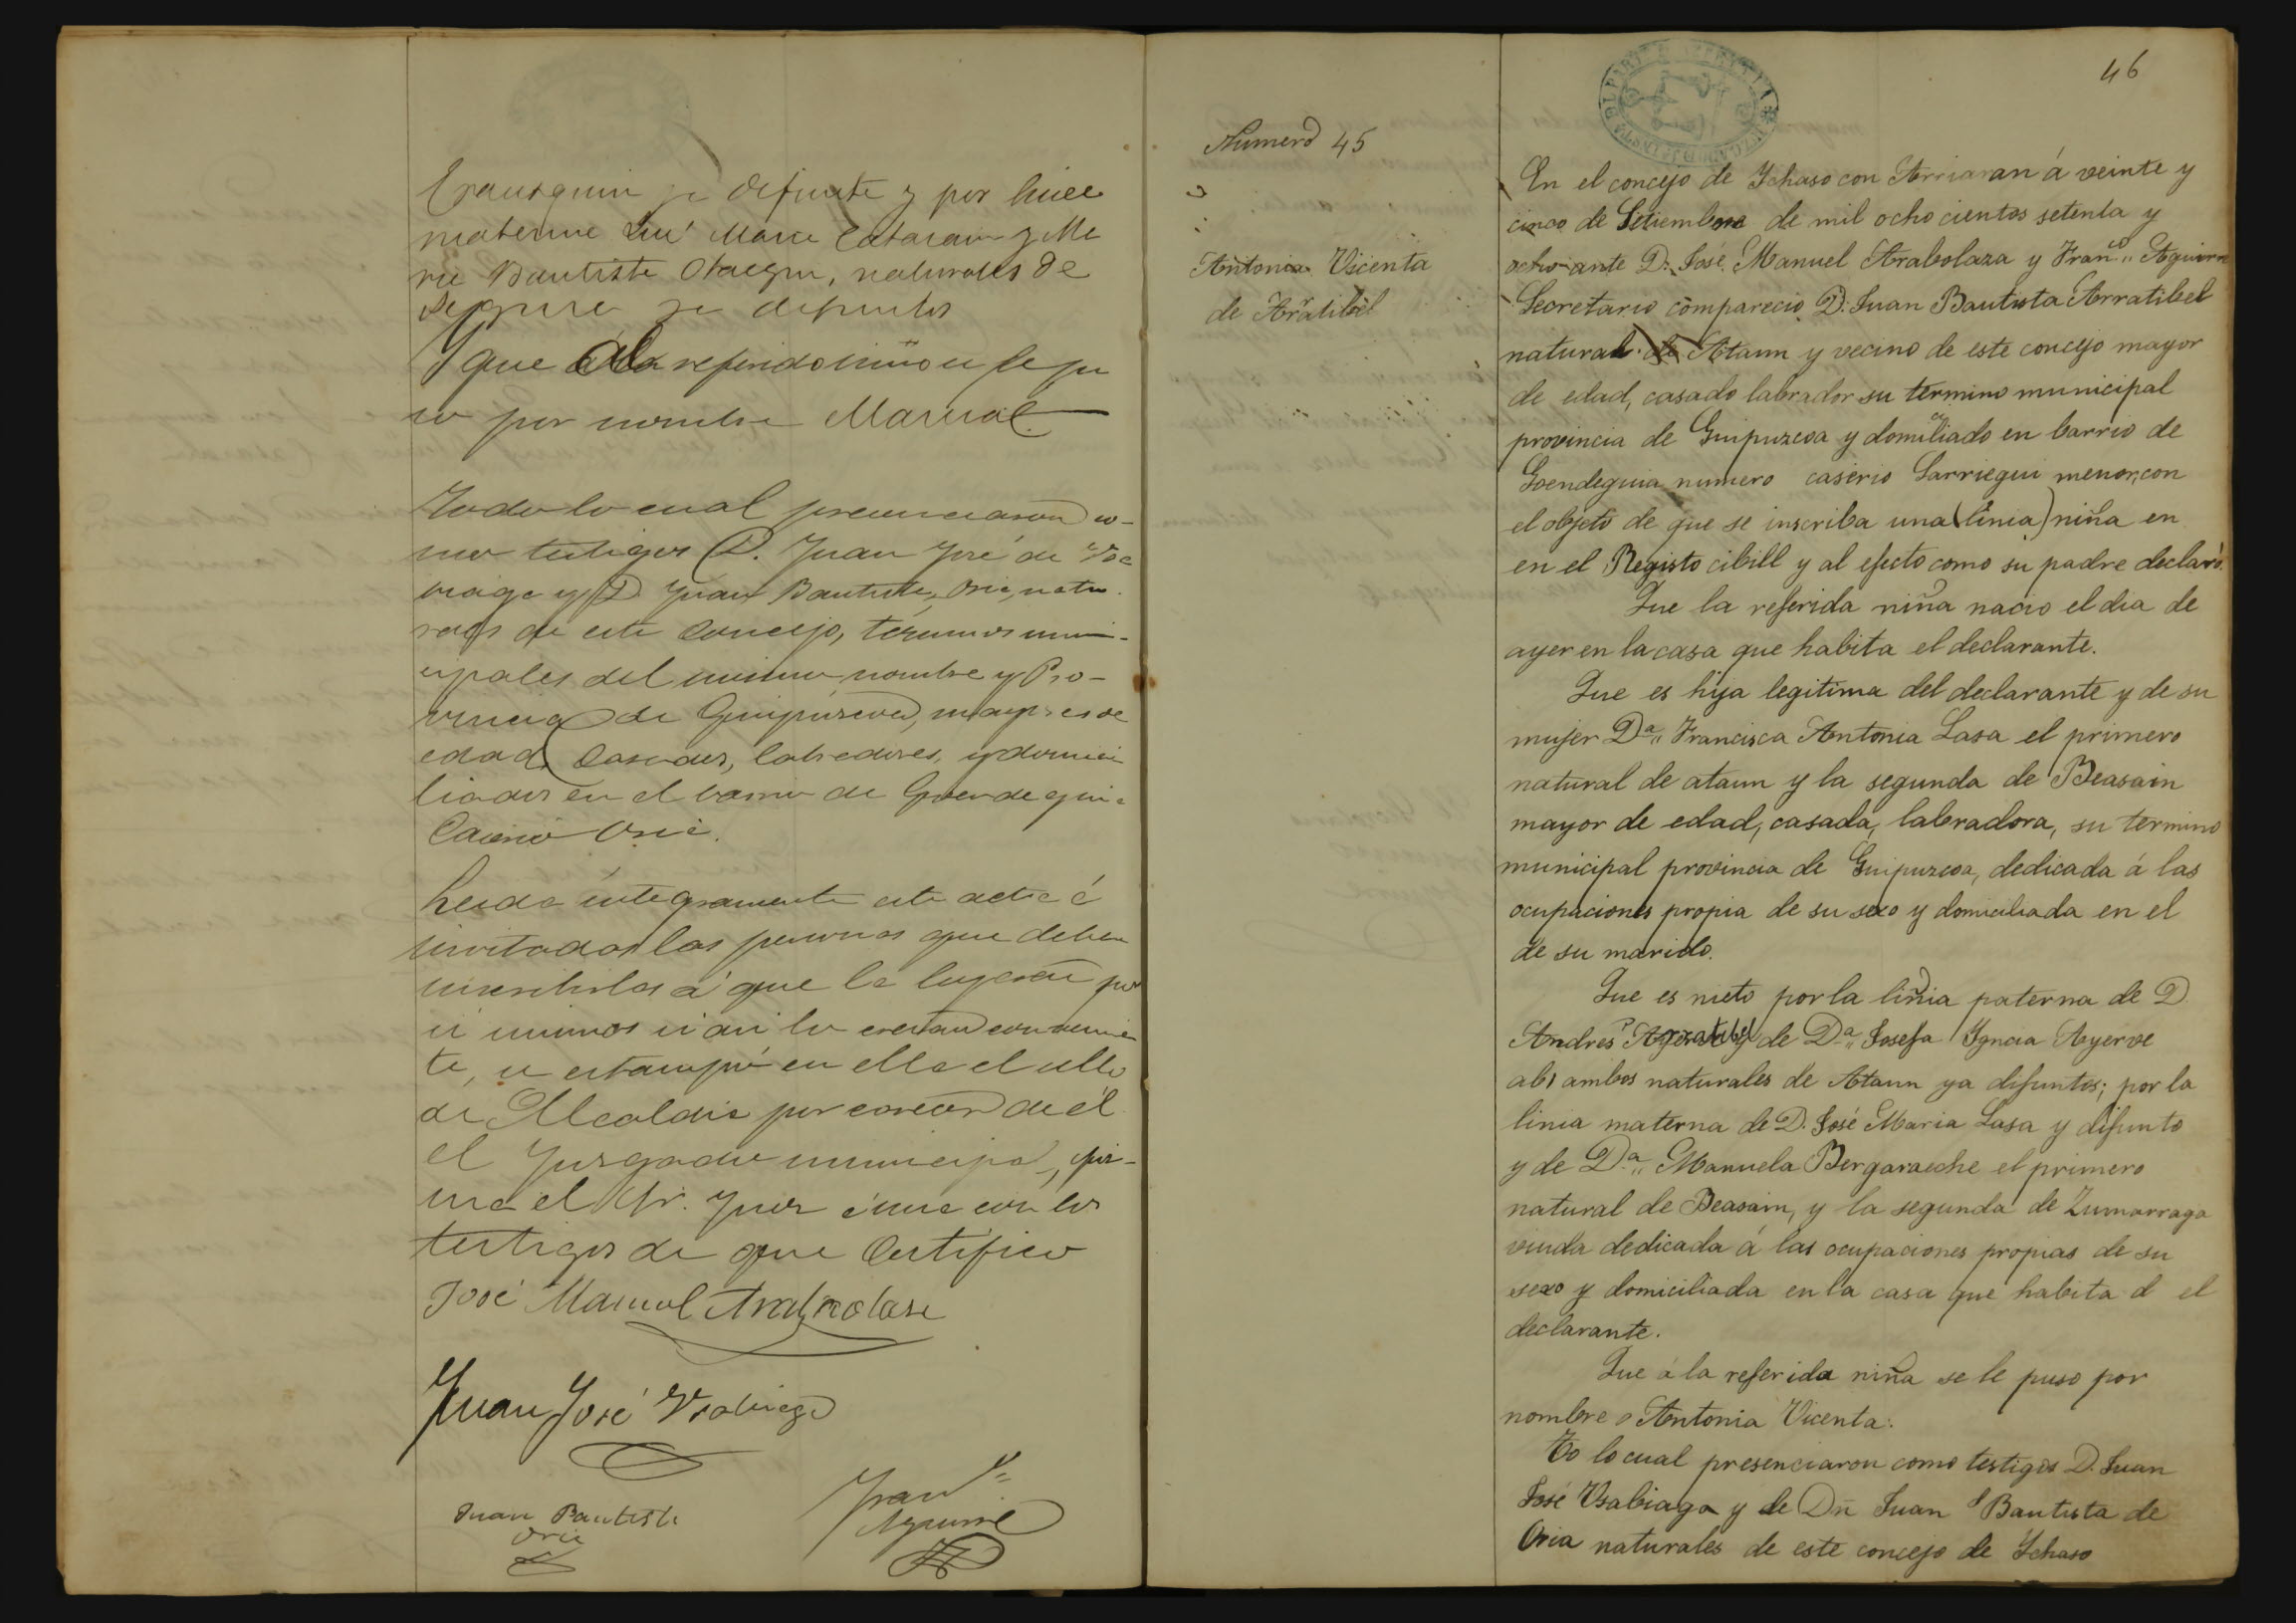 ya difunta y por linea
materna José Maria Catarain y Ma
ria Bautista Otaegui, naturales de
Segura ya difuntos
Y que al referido niño se le pu
so por nombre Marcial.
Todo lo cual presenciaron co-
mo testigos D. Juan José de Usa
biaga y D. Juan Bautista Oria, natu
rales de este Concejo, terminos muni-
cipales del mismo nombre y Pro-
vincia de Guipuzcoa, mayores de
edad, Casados, labradores, y domici
liados en el barrio de Goendeguia
Caserio Oria.
Leida integramente esta acta é
invitadas las personas que deben
suscribirla á que la leyeran por
si mismos si asi lo creian convenien
te, se estampó en ella el sello
de Alcaldia por carecer de él
el Juzgado municipal, fir-
ma el Sr. Juez con los
testigos de que Certifico
José Manuel Arabolaza
Juan José Usabiaga
Juan Bautista
Oria
Fran.co
Aguirre
46
Numero 45
Antonia Vicenta
de Arratibel
En el concejo de Ychaso con Arriaran á veinte y
cinco de Setiembre de mil ocho cientos setenta y
ocho ante D. José Manuel Arabolaza y Fran.co Aguirre
Secretario comparecio D. Juan Bautista Arratibel
natural de Ataun y vecino de este concejo mayor
de edad, casado labrador su termino municipal
provincia de Guipuzcoa y domiciliado en barrio de
Goendeguia numero caserio Sarriegui menor, con
el objeto de que se inscriba una (linia) niña en
en el Registo cibill y al efecto como su padre declaró.
Que la referida niña nacio el dia de
ayer en la casa que habita el declarante.
Que es hija legitima del declarante y de su
mujer Da. Francisca Antonia Lasa el primero
natural de ataun y la segunda de Beasain
mayor de edad, casada, labradora, su termino
municipal provincia de Guipuzcoa, dedicada á las
ocupaciones propia de su sexo y domiciliada en el
de su marido.
Que es nieto por la liñia paterna de D.
Andres Arratibel y de Da. Josefa Ygncia Ayerve
abs ambos naturales de Ataun ya difuntos; por la
linia materna de D. José Maria Lasa y difunto
y de Da. Manuela Bergaraeche el primero
natural de Beasain, y la segunda de Zumarraga
viuda dedicada á las ocupaciones propias de su
sexo y domiciliada en la casa que habita d el
declarante.
Que á la referida niña se le puso por
nombre Antonia Vicenta.
To lo cual presenciaron como testigos D. Juan
José Usabiaga y de Dn Juan Bautista de
Oria naturales de este concejo de Ychaso